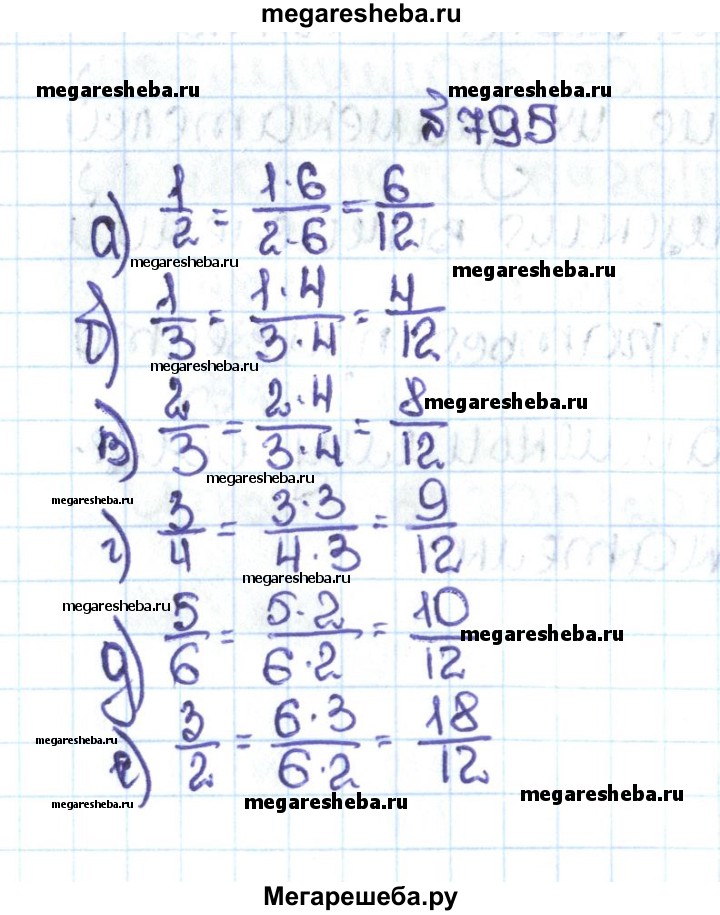 megaresheba.ru
megaresheba.ru
megaresheba.ru
№ 795
а) 1/2 = 1·6/2·6 = 6/12
megaresheba.ru
megaresheba.ru
б) 1/3 = 1·4/3·4 = 4/12
megaresheba.ru
в) 2/3 = 2·4/3·4 = 8/12
megaresheba.ru
megaresheba.ru
megaresheba.ru
г) 3/4 = 3·3/4·3 = 9/12
megaresheba.ru
megaresheba.ru
д) 5/6 = 5·2/6·2 = 10/12
megaresheba.ru
е) 3/2 = 6·3/6·2 = 18/12
megaresheba.ru
megaresheba.ru
megaresheba.ru
megaresheba.ru
Мегарешеба.ру